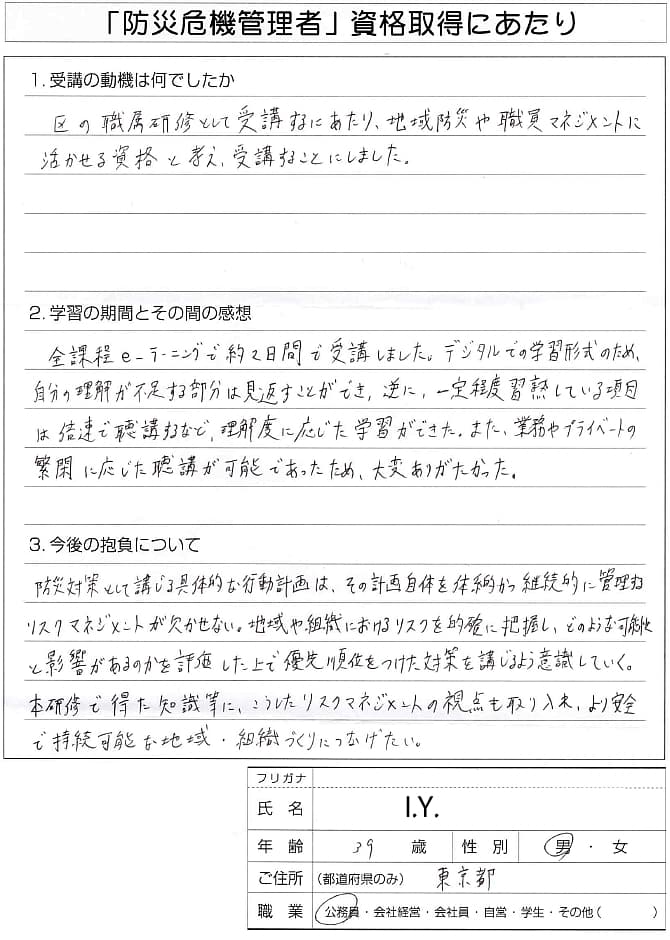 「防災危機管理者」資格取得にあたり
1. 受講の動機は何でしたか
区の職属研修として受講するにあたり、地域防災や職員マネジメントに
活かせる資格と考え、受講することにしました。
2. 学習の期間とその間の感想
全課程e-ラーニングで約2日間で受講しました。デジタルでの学習形式のため、
自分の理解が不足する部分は見返すことができ、逆に、一定程度習熟している項目
は倍速で聴講するなど、理解度に応じた学習ができた。また、業務やプライベートの
繁閑に応じた聴講が可能であったため、大変ありがたかった。
3. 今後の抱負について
防災対策として講じる具体的な行動計画は、その計画自体を体系的かつ継続的に管理する
リスクマネジメントが欠かせない。地域や組織におけるリスクを的確に把握し、どのような可能性
と影響があるのかを評価した上で優先順位をつけた対策を講じるよう意識していく。
本研修で得た知識等に、こうしたリスクマネジメントの視点も取り入れ、より安全
で持続可能な地域・組織づくりにつなげたい。
フリガナ
氏名 I.Y.
年齢 39 歳 性別 男・女
ご住所 (都道府県のみ) 東京都
職業 公務員・会社経営・会社員・自営・学生・その他( )